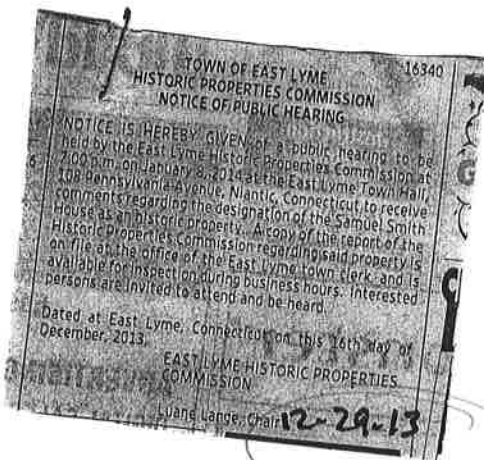 16340
TOWN OF EAST LYME
HISTORIC PROPERTIES COMMISSION
NOTICE OF PUBLIC HEARING
NOTICE IS HEREBY GIVEN of a public hearing to be
held by the East Lyme Historic Properties Commission at
7:00 p.m. on January 8, 2014 at the East Lyme Town Hall,
108 Pennsylvania Avenue, Niantic, Connecticut, to receive
comments regarding the designation of the Samuel Smith
House as an historic property. A copy of the report of the
Historic Properties Commission regarding said property is
on file at the office of the East Lyme town clerk, and is
available for inspection during business hours. Interested
persons are invited to attend and be heard.
Dated at East Lyme, Connecticut on this 16th day of
December, 2013.
EAST LYME HISTORIC PROPERTIES
COMMISSION
Luane Lange, Chair
12-29-13